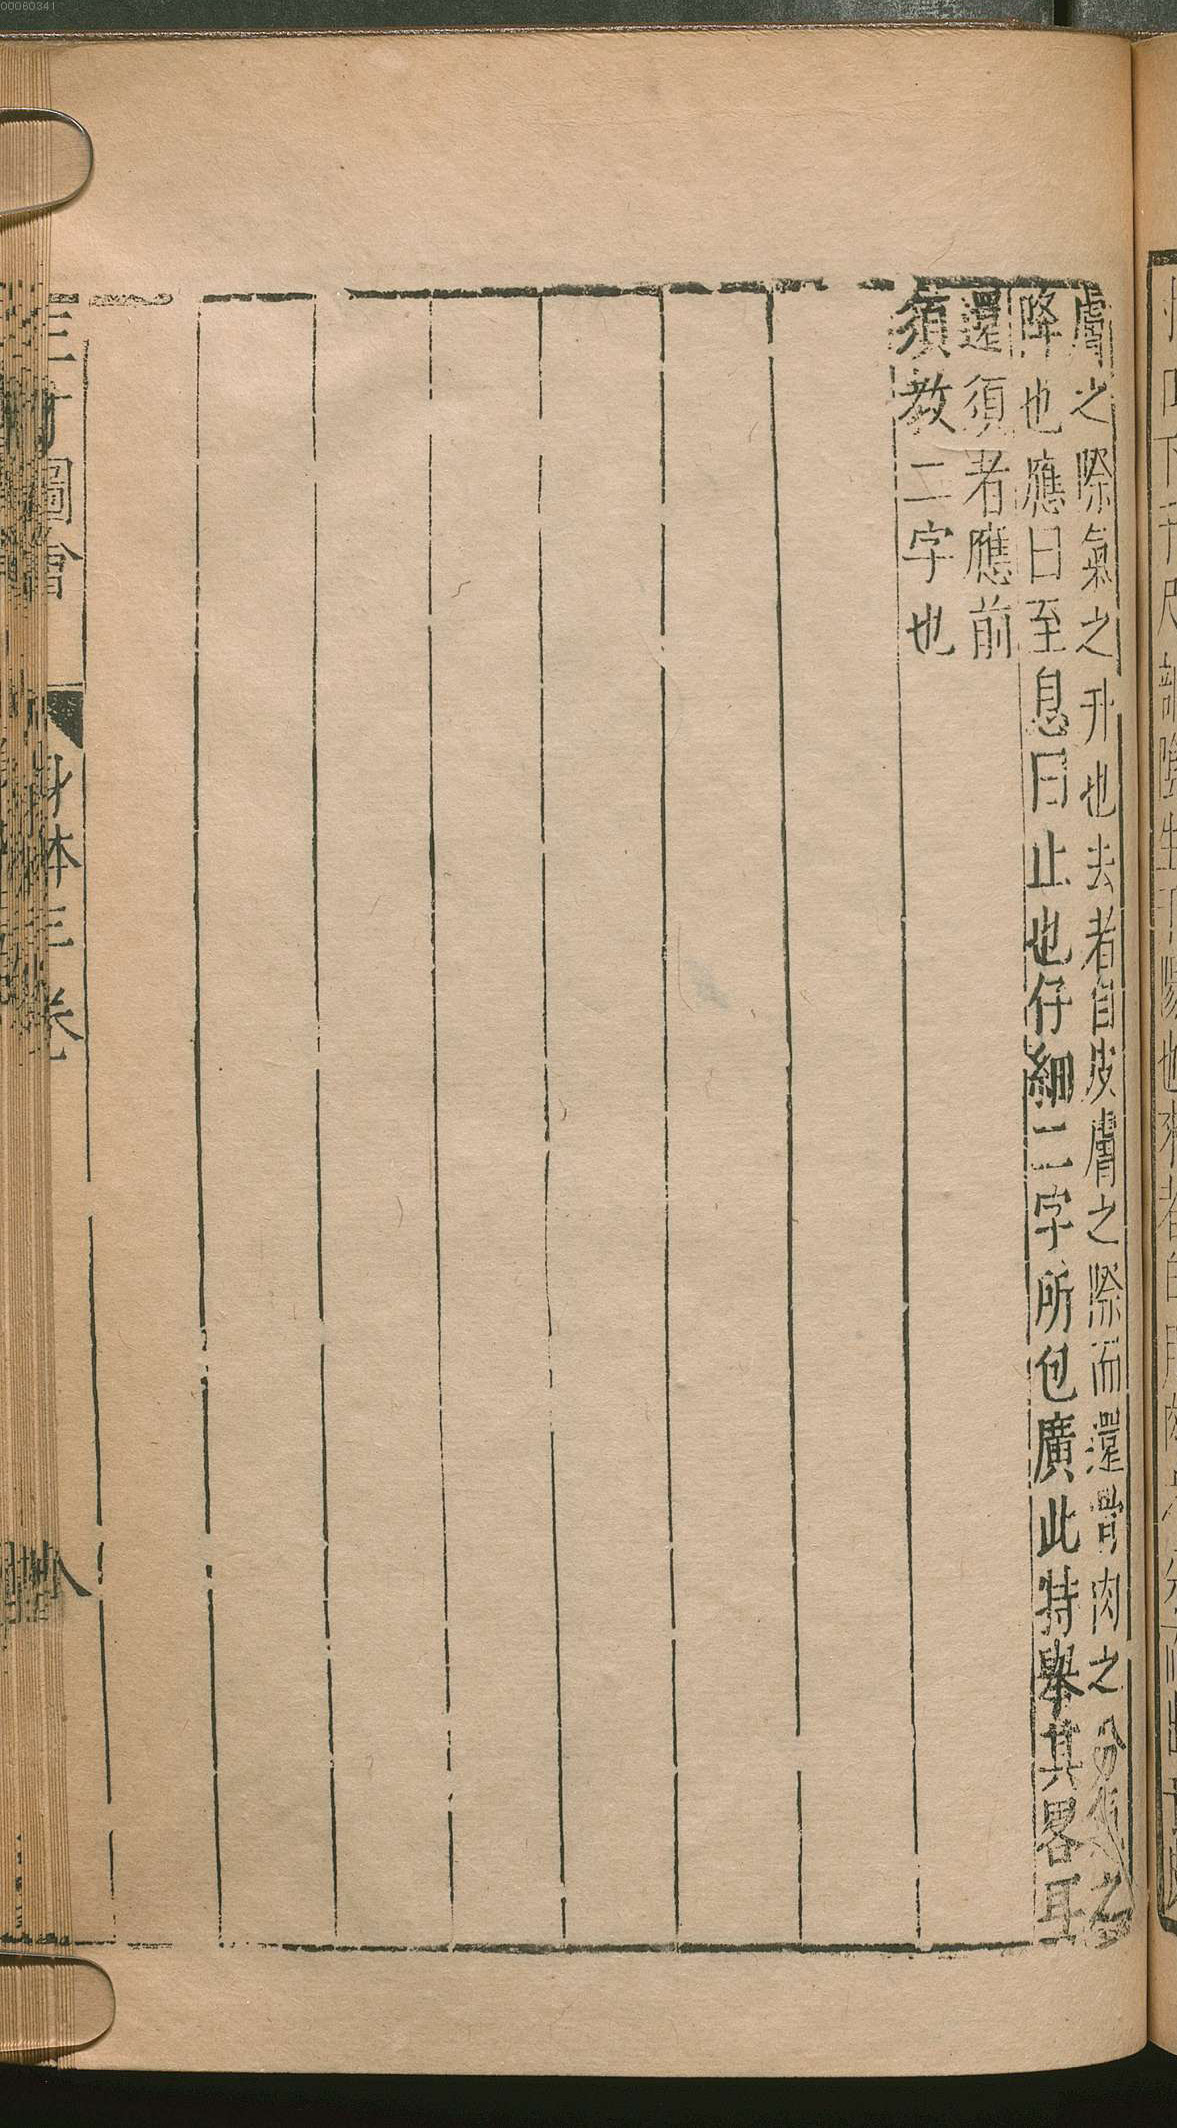 膚之際氣之升也去者自皮膚之際而還骨肉之分氣之
降也應曰至息曰止也仔細二字所包廣此特舉其畧耳
還須者應前
須教二字也
三才圖會
身体三卷
八
00060341